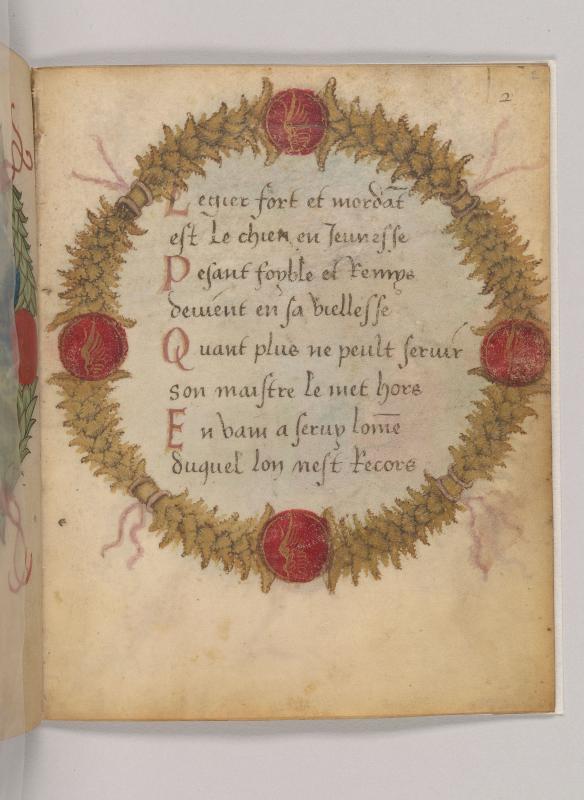 2
Legier fort et mordāt
est le chien en Jeunesse
Pesant foyble et Remys
deuient en sa viellesse
Quant plus ne peult seruir
son maistre le met hors
En vain a seruy lom̄e
duquel lon nest Recors